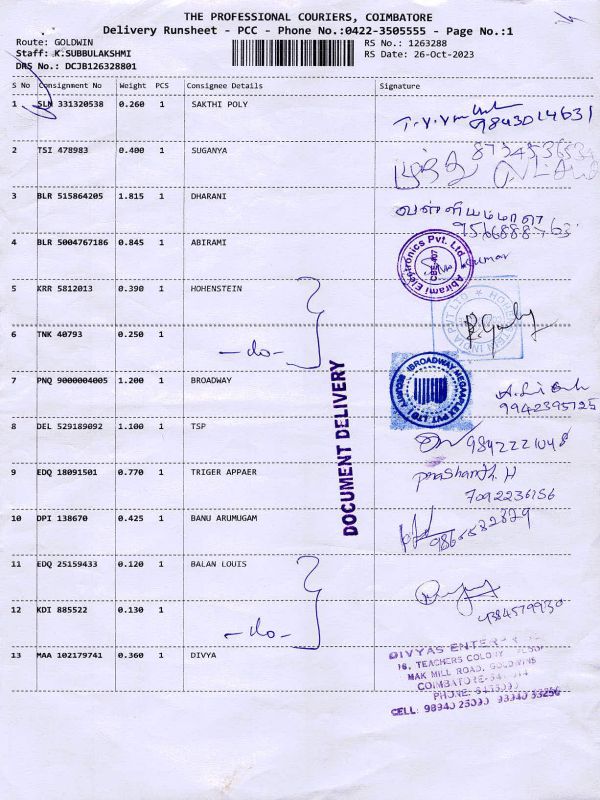 THE PROFESSIONAL COURIERS, COIMBATORE
Delivery Runsheet - PCC - Phone No.:0422-3505555 - Page No.:1
Route: GOLDWIN
Staff: K.SUBBULAKSHMI
DRS No.: DCJB126328801
RS No.: 1263288
RS Date: 26-Oct-2023
S No Consignment No Weight PCS Consignee Details Signature
1 SLM 331320538 0.260 1 SAKTHI POLY
9843014631
2 TSI 478983 0.400 1 SUGANYA
3 BLR 515864205 1.815 1 DHARANI
வள்ளியம்மாள்
4 BLR 5004767186 0.845 1 ABIRAMI
Abirami Electronics Pvt. Ltd.
5 KRR 5812013 0.390 1 HOHENSTEIN
6 TNK 40793 0.250 1
-do-
7 PNQ 9000004005 1.200 1 BROADWAY
BROADWAY MEGAAPLEX PVT LTD
9942395125
DOCUMENT DELIVERY
8 DEL 529189092 1.100 1 TSP
9842221048
9 EDQ 18091501 0.770 1 TRIGER APPAER
Prashanth. H
7092236156
10 DPI 138670 0.425 1 BANU ARUMUGAM
11 EDQ 25159433 0.120 1 BALAN LOUIS
12 KDI 885522 0.130 1
-do-
13 MAA 102179741 0.360 1 DIVYA
DIVYAS
16, TEACHERS COLONY
MAK MILL ROAD, GOLDWINS
COIMBATORE-
PHONE:
CELL: 98940 25090